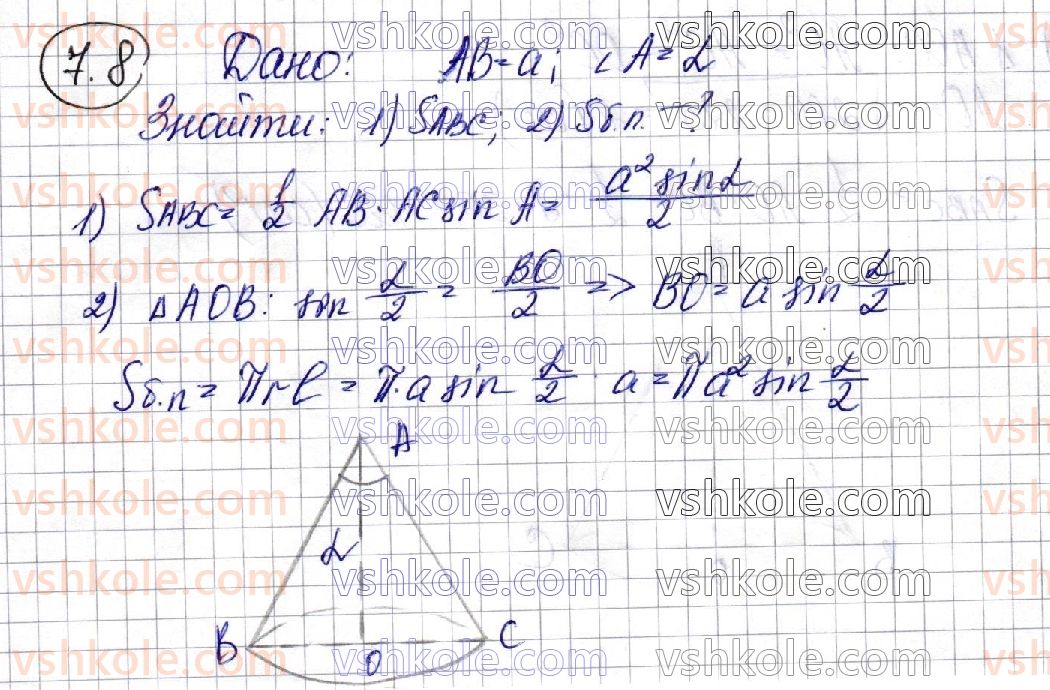 7.8 Дано: AB=a; ∠A=α
Знайти: 1) SABC; 2) Sб.п. - ?
1) SABC = 1/2 AB · AC sin A = a² sin α / 2
2) ΔAOB: sin α/2 = BO/2 => BO = a sin α/2
Sб.п = πrl = π·a sin α/2 · a = πa² sin α/2
A
α
B
O
C
vshkole.com